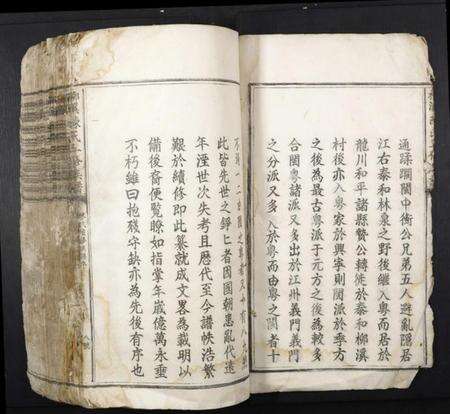 通蹂躪闗中衛公兄弟五人避亂隱居
江右泰和林梟之野後繼入粤而居於
龍川和平諸縣贊公轉徙於泰和柳溪
村後亦入粤家於興寧則閩派於季方
之後為最古粤派于元方之後為較多
合閩粤諸派又多出於江州義門義門
之分派又多入於粤而由粤之閩者十
此皆先世之錚ヒ者因國朝患亂代遠
年湮世次失考且歷代至今譜帙浩繁
艱於續修即此纂就成文畧為裁明以
備後裔便覽瞭如指掌年歲億萬永垂
不朽雖曰抱殘守缺亦為先後有序也